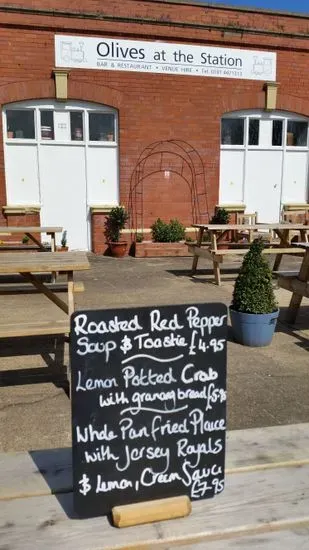 Olives at the Station
BAR & RESTAURANT • VENUE HIRE •
Roasted Red Pepper
Soup & Toastie £4.95
Lemon Potted Crab
with granary bread £5.95
Whole Pan Fried Plaice
with Jersey Royals
& Lemon, Cream Sauce
£7.95